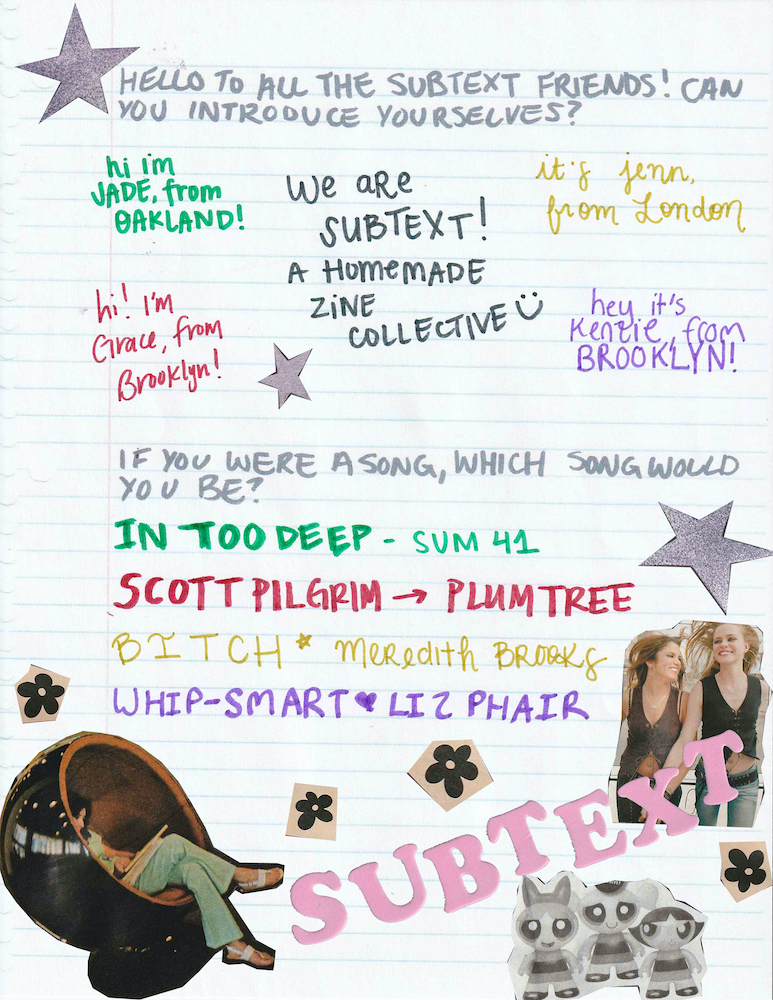 HELLO TO ALL THE SUBTEXT FRIENDS! CAN
YOU INTRODUCE YOURSELVES?
hi im
JADE, from
OAKLAND!
We ARe
SUBTEXT!
A HomeMADE
ZiNE
COLLECTIVE
it's jenn,
from London
hi! I'm
Grace, from
Brooklyn!
hey it's
Kenzie, from
BROOKLYN!
IF YOU WERE A SONG, WHICH SONG WOULD
YOU BE?
IN TOO DEEP - SUM 41
SCOTT PILGRIM → PLUMTREE
BITCH * MeRedith BROOKS
WHIP-SMART ♥ LIZ PHAIR
SUBTEXT